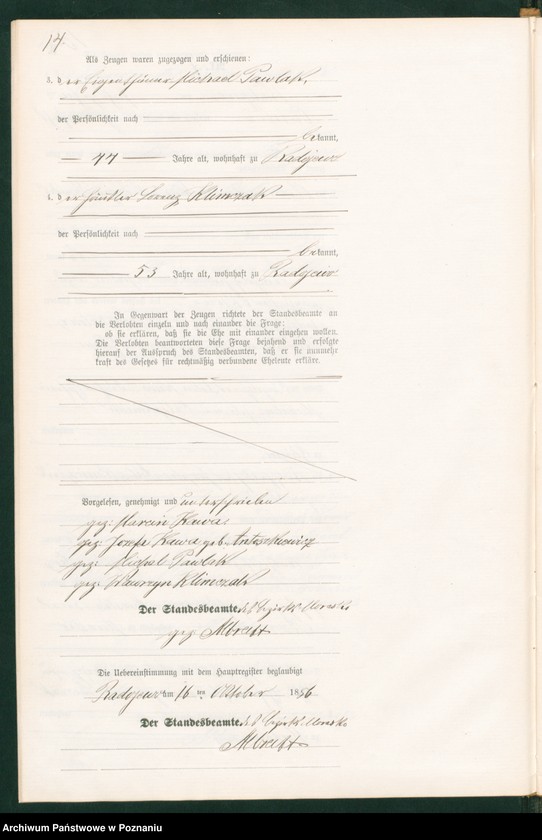 14.
Als Zeugen waren zugezogen und erschienen:
3. der Eigenthümer Michael Pawlak,
der Persönlichkeit nach
bekannt,
44 Jahre alt, wohnhaft zu Radojewo
4. der Häusler Lorenz Klimczak
der Persönlichkeit nach
bekannt,
53 Jahre alt, wohnhaft zu Radojewo
In Gegenwart der Zeugen richtete der Standesbeamte an
die Verlobten einzeln und nach einander die Frage:
ob sie erklären, daß sie die Ehe mit einander eingehen wollen.
Die Verlobten beantworteten diese Frage bejahend und erfolgte
hierauf der Ausspruch des Standesbeamten, daß er sie nunmehr
kraft des Gesetzes für rechtmäßig verbundene Eheleute erkläre.
Vorgelesen, genehmigt und unterschrieben
gez. Marcin Kawa
gez. Josefa Kawa geb.
gez. Michael Pawlak
gez. Wawrzyn Klimczak
Der Standesbeamte des Bezirks
gez. Albrecht
Die Uebereinstimmung mit dem Hauptregister beglaubigt
Radojewo am 16 ten Oktober 1886
Der Standesbeamte des Bezirks
Albrecht
Archiwum Państwowe w Poznaniu